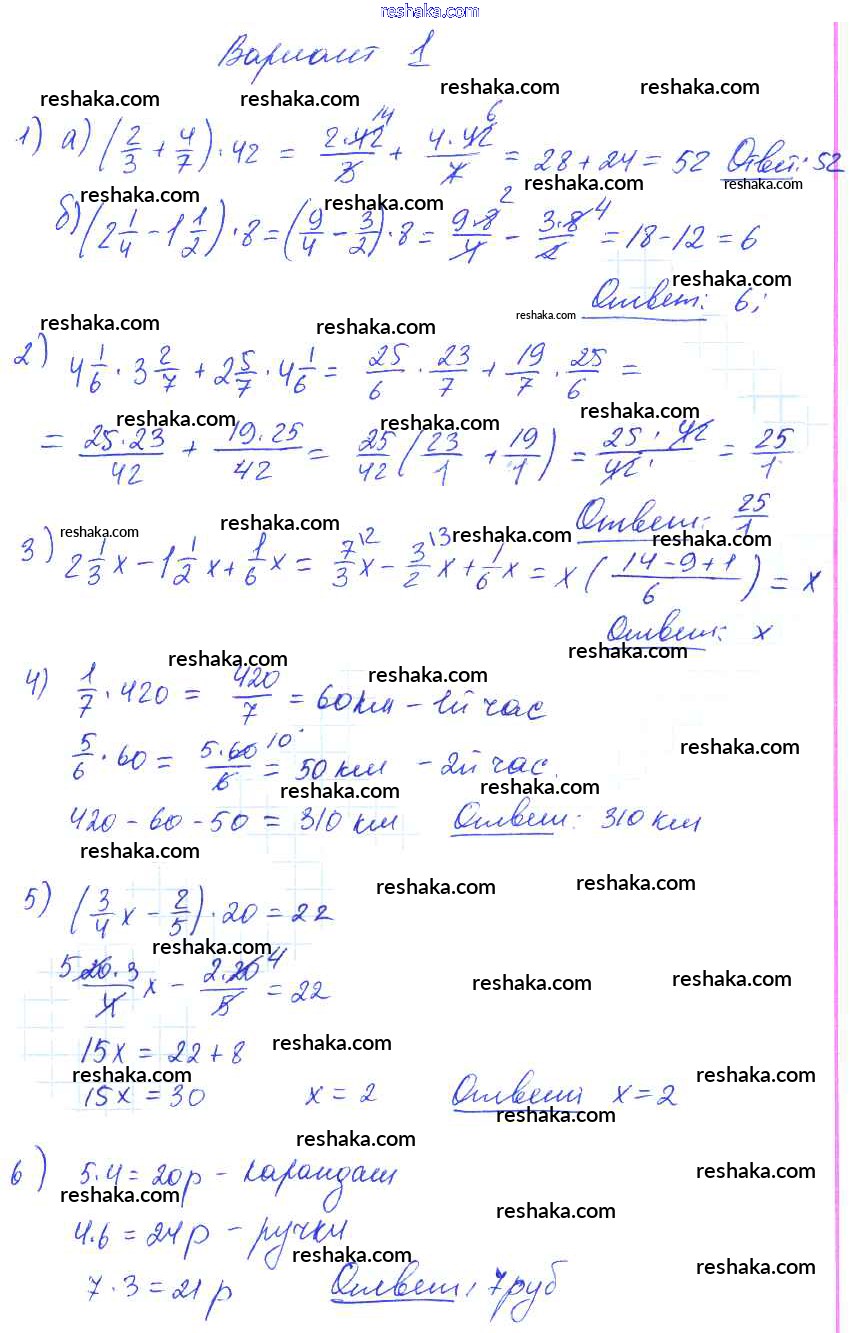 reshaka.com
Вариант 1
reshaka.com reshaka.com reshaka.com reshaka.com
1) а) (2/3 + 4/7) · 42 = 2·42/3 14 + 4·42/7 6 = 28 + 24 = 52 Ответ: 52
reshaka.com reshaka.com reshaka.com reshaka.com
б) (2 1/4 - 1 1/2) · 8 = (9/4 - 3/2) · 8 = 9·8/4 2 - 3·8/2 4 = 18 - 12 = 6
reshaka.com
Ответ: 6;
reshaka.com reshaka.com reshaka.com
2) 4 1/6 · 3 2/7 + 2 5/7 · 4 1/6 = 25/6 · 23/7 + 19/7 · 25/6 =
reshaka.com reshaka.com reshaka.com
= 25·23/42 + 19·25/42 = 25/42 (23/1 + 19/1) = 25·42/42· = 25/1
Ответ: 25/1
reshaka.com reshaka.com reshaka.com reshaka.com
3) 2 1/3 x - 1 1/2 x + 1/6 x = 7/3 12 x - 3/2 13 x + 1/6 x = x (14-9+1/6) = x
Ответ: x
reshaka.com reshaka.com reshaka.com
4) 1/7 · 420 = 420/7 = 60 км - 1й час
reshaka.com
5/6 · 60 = 5·60/6 10 = 50 км - 2й час.
reshaka.com reshaka.com
420 - 60 - 50 = 310 км Ответ: 310 км
reshaka.com reshaka.com reshaka.com
5) (3/4 x - 2/5) · 20 = 22
reshaka.com
5 20·3/4 x - 2·20/5 4 = 22
reshaka.com reshaka.com
15x = 22 + 8
reshaka.com reshaka.com reshaka.com
15x = 30 x = 2 Ответ x = 2
reshaka.com reshaka.com
6) 5·4 = 20р - карандаш
reshaka.com reshaka.com reshaka.com
4·6 = 24р - ручки
reshaka.com reshaka.com
7·3 = 21р Ответ: 7руб